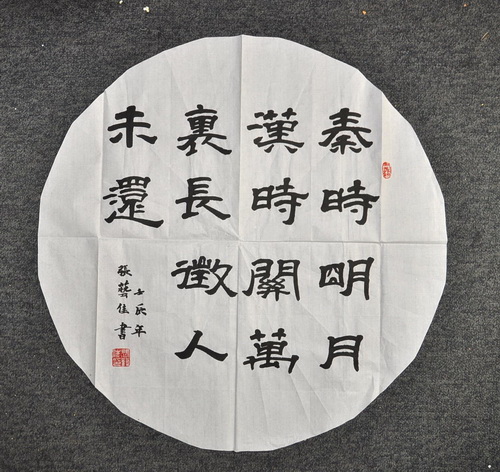 秦時明月
漢時關萬
裏長徵人
未還
壬辰年
張藝佳書